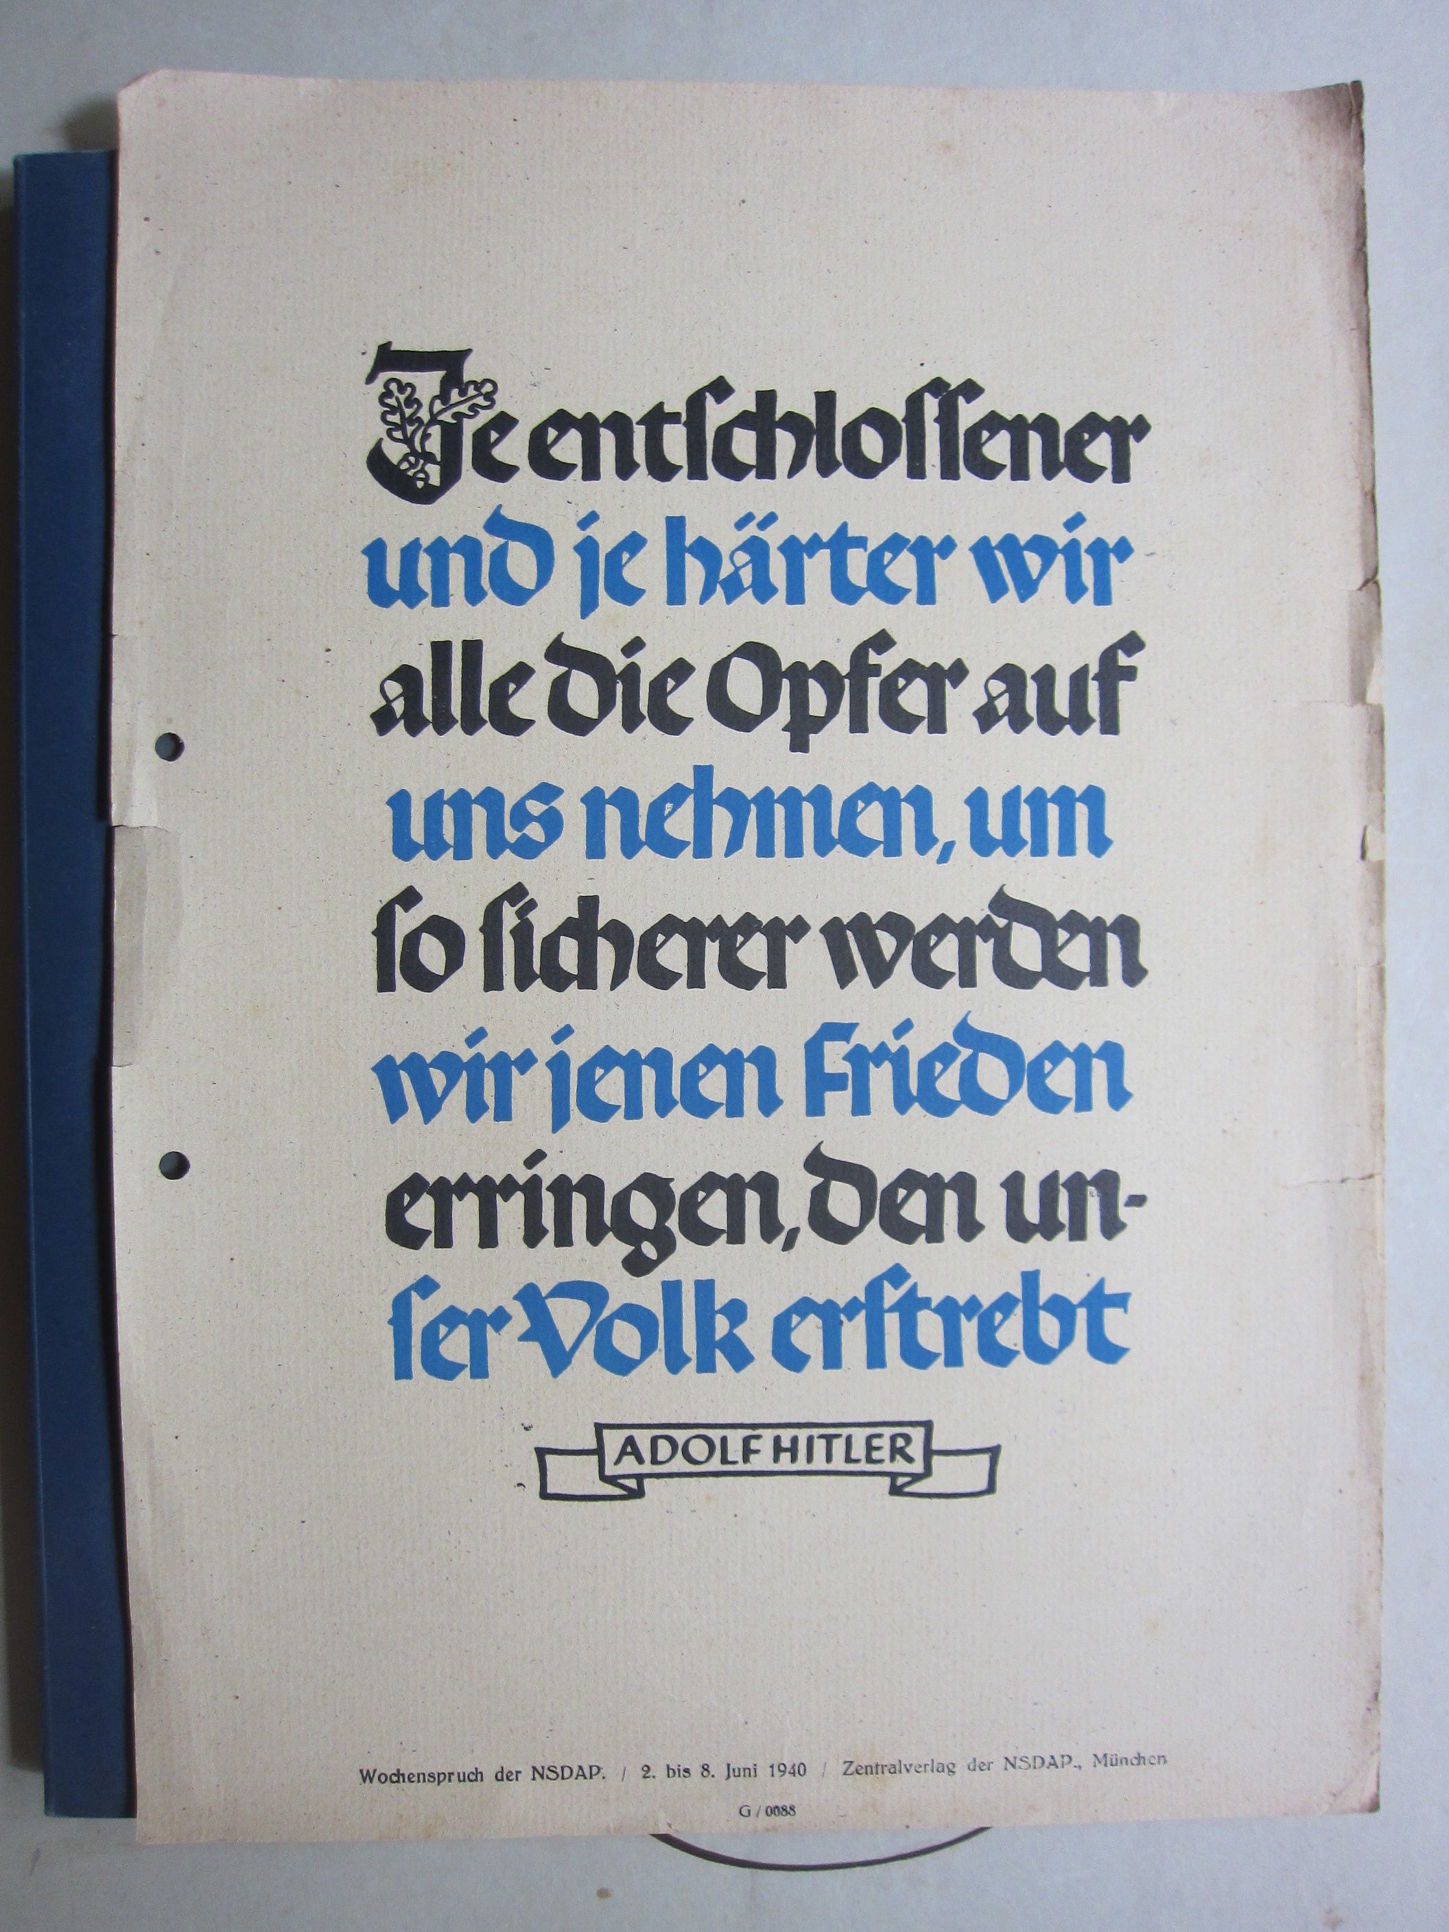 Je entschlossener
und je härter wir
alle die Opfer auf
uns nehmen, um
so sicherer werden
wir jenen Frieden
erringen, den un-
ser Volk erstrebt
ADOLF HITLER
Wochenspruch der NSDAP. / 2. bis 8. Juni 1940 / Zentralverlag der NSDAP., München
G / 0088